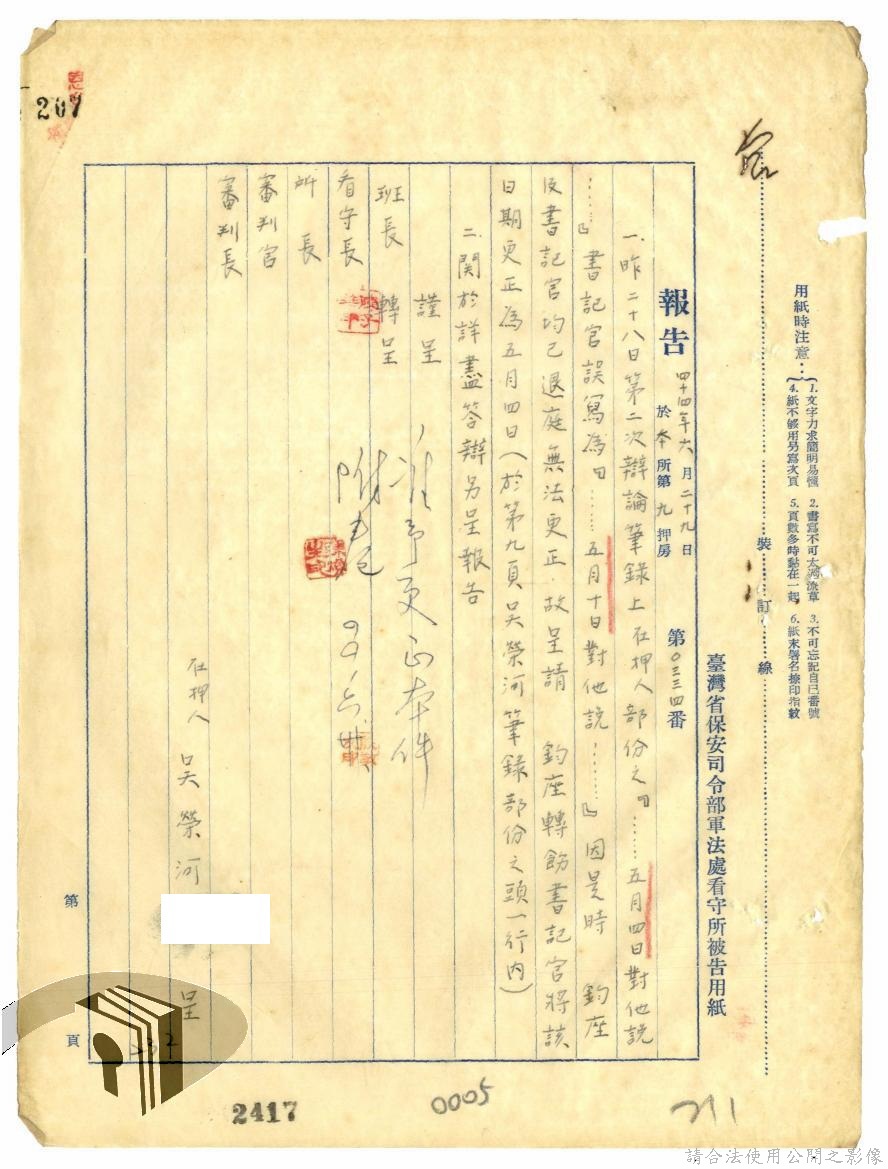 用紙時注意：
1. 文字力求簡明易懂
2. 書寫不可太過潦草
3. 不可忘記自己番號
4. 紙不够用另寫次頁
5. 頁數多時黏在一起
6. 紙末署名捺印指紋
裝訂線
臺灣省保安司令部軍法處看守所被告用紙
報告 四十四年六月二十九日
於本所第九押房
第〇三三四番
一、昨二十八日第二次辯論筆錄上在押人部份之『……五月四日對他說
……』書記官誤寫為『……五月十日對他說……』因是時 鈞座
及書記官均已退庭無法更正故呈請 鈞座轉飭書記官將該
日期更正為五月四日(於第九頁吳榮河筆錄部份之頭一行內)
二、関於詳盡答辯另呈報告
謹呈
班長 轉呈
看守長
所長
審判官
審判長
准予更正本件
附卷
在押人 吳榮河 呈
第 頁
207
2417
0005
711
請合法使用公開之影像